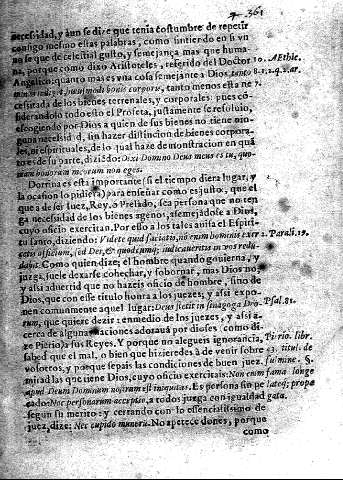 361
necesidad, y aun se dize que tenia costumbre de repetir
consigo mesmo estas palabras, como sintiendo en si vn
no se que de celestial gusto, y semejança mas que huma-
na, porque como dixo Aristoteles, referido del Doctor 10. AEthic.
Angelico: quanto mas es vna cosa semejante a Dios, tanto 8. 1. 2. q. 2. ar.
4. huiusmodi bonis corporis, tanto menos esta ne 7.
cesitada de los bienes terrenales, y corporales: pues co-
siderandolo todo esto el Profeta, justamente se resoluio,
escogiendo por Dios a quien de sus bienes no tiene nin-
guna necesidad, sin hazer distincion de bienes corpora-
les, ni espirituales, de lo qual haze demonstracion en quã
to es de su parte, diziẽdo: Dixi Domino Deus meus es tu, quo-
niam bonorum meorum non eges.
Dotrina es esta importante (si el tiempo diera lugar, y
la ocasion lo pidiera) para enseñar como es justo, que el
que a de ser Iuez, Rey, o Prelado, sea persona que no ten
ga necesidad de los bienes agenos, asemejãdose a Dios,
cuyo oficio exercitan. Por eso a los tales auisa el Espiri-
tu santo, diziendo: Videte quid faciatis, no enim hominis exer 2. Parali. 19.
cetis officium, sed Dei, & quodcumq; iudicaueritis in vos redũ-
dabit. Como quien dize; el hombre quando gouierna, y
juzga, suele dexarse cohechar, y sobornar, mas Dios no,
y asi aduertid que no hazeis oficio de hombre, sino de
Dios, que con esse titulo honra a los juezes; y asi expo-
nen comunmente aquel lugar: Deus stetit in sinagoga Deo Psal. 81.
rum, que quiere dezir: en medio de los juezes, y asi a-
cerca de algunas naciones adoraua por dioses (como di-
ze Pierio) a sus Reyes. Y porque no alegueis ignorancia, Pierio. libr.
sabed que el mal, o bien que hizieredes à de venir sobre 43. titul. de
vosotros, y porque sepais las condiciones de buen juez, fulmine. §.
mirad las que tiene Dios, cuyo oficio exercitais: Non enim fama longe
apud Deum Dominum nostrum est iniquitas. Es persona sin pe lateq; propa
cado: Nec personarum acceptio, a todos juzga con igualdad gata.
segun su merito: y cerrando con lo essencialissimo de
juez, dize: Nec cupido munerũ. No apetece dones, porque
como